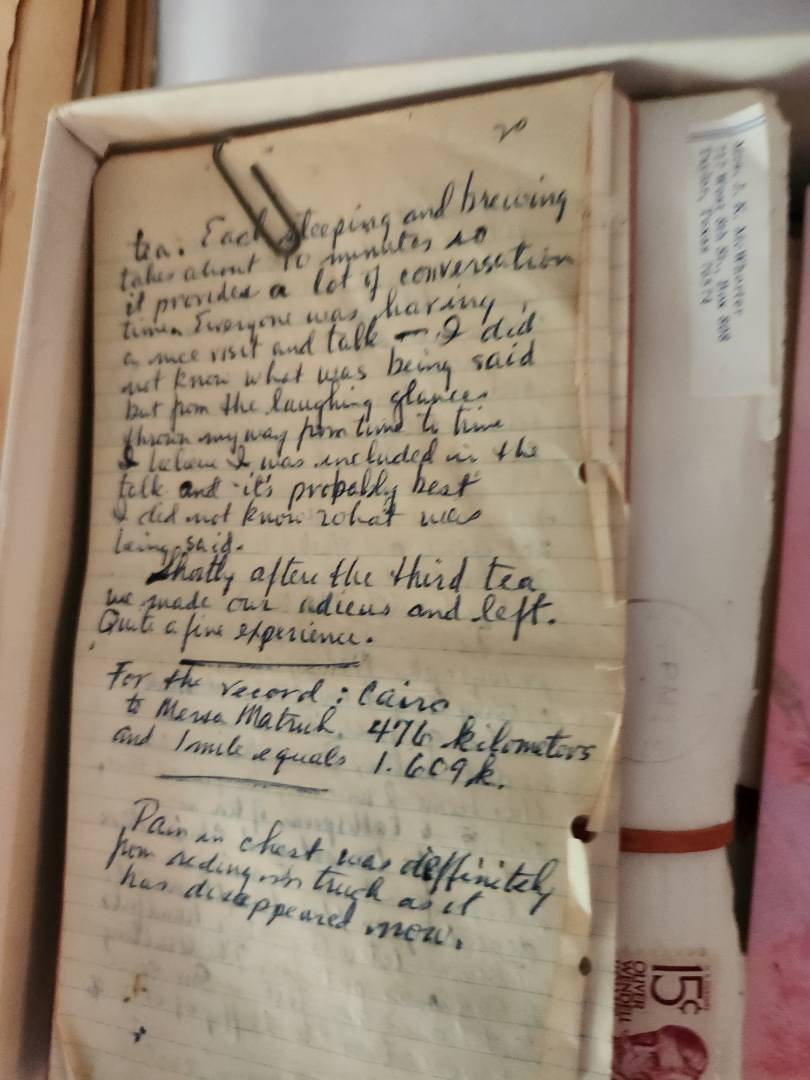 20
tea. Each sleeping and brewing
takes about 10 minutes so
it provides a lot of conversation
time. Everyone was having
a nice visit and talk — I did
not know what was being said
but from the laughing glances
thrown my way from time to time
I believe I was included in the
talk and it's probably best
I did not know what was
being said.
Shortly after the third tea
we made our adieus and left.
Quite a fine experience.
For the record: Cairo
to Mersa Matruh 476 kilometers
and 1 mile equals 1.609 k.
Pain in chest was deffinitely
from riding truck as it
has disappeared now.
J. K. McWhorter
717 West 8th St., Box 808
Taylor, Texas 76574
15¢
OLIVER
WENDELL